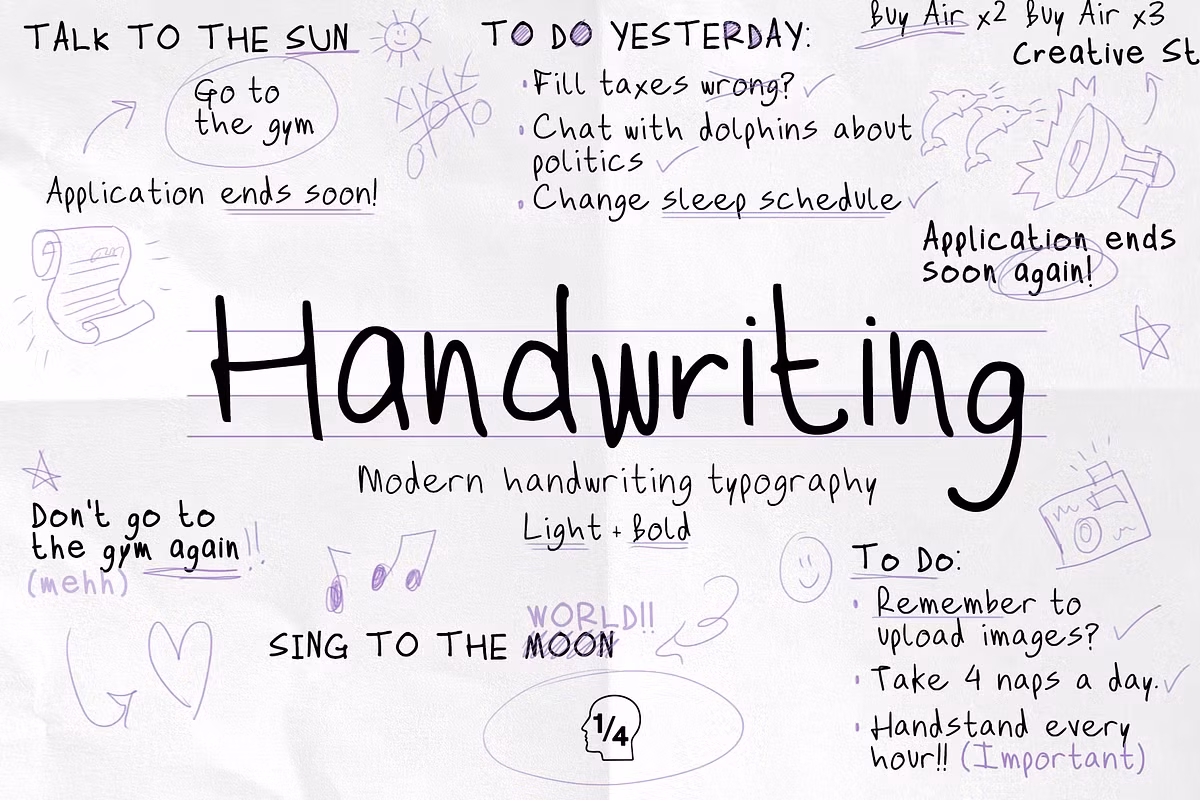 TALK TO THE SUN
Go to
the gym
Application ends soon!
TO DO YESTERDAY:
• Fill taxes wrong?
• Chat with dolphins about
politics
• Change sleep schedule
Buy Air x2 Buy Air x3
Creative St
Application ends
soon again!
Handwriting
Modern handwriting typography
Light + Bold
Don't go to
the gym again!!
(mehh)
WORLD!!
SING TO THE MOON
1/4
To Do:
• Remember to
upload images?
• Take 4 naps a day.
• Handstand every
hour!! (Important)